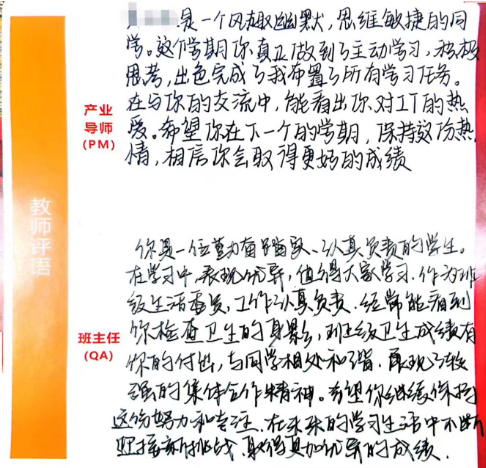 是一个风趣幽默，思维敏捷的同
学。这个学期你真正做到了主动学习，积极
思考，出色完成了我布置了所有学习任务。
在与你的交流中，能看出你对IT的热
爱。希望你在下一个的学期，保持这份热
情，相信你会取得更好的成绩
产业
导师
(PM)
教师评语
你是一位勤奋、认真负责的学生。
在学习中，表现优异，值得大家学习。作为班
级生活委员，工作认真负责，经常能看到
你检查卫生的身影，班级卫生成绩有
你的付出，与同学相处和谐，展现了较
强的集体合作精神。希望你继续保持
这份努力和专注，在未来的学习生活中不断
迎接新挑战，取得更加优异的成绩。
班主任
(QA)